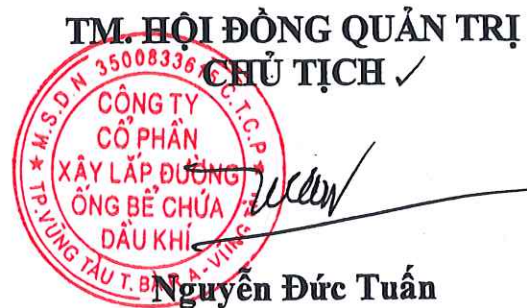 TM. HỘI ĐỒNG QUẢN TRỊ
CHỦ TỊCH ✓
M.S.D.N 3500833615 C.T.C.P
CÔNG TY
CỔ PHẦN
XÂY LẮP ĐƯỜNG
ỐNG BỂ CHỨA
DẦU KHÍ
TP.VŨNG TÀU T. BÀ RỊA - VŨNG
Nguyễn Đức Tuấn